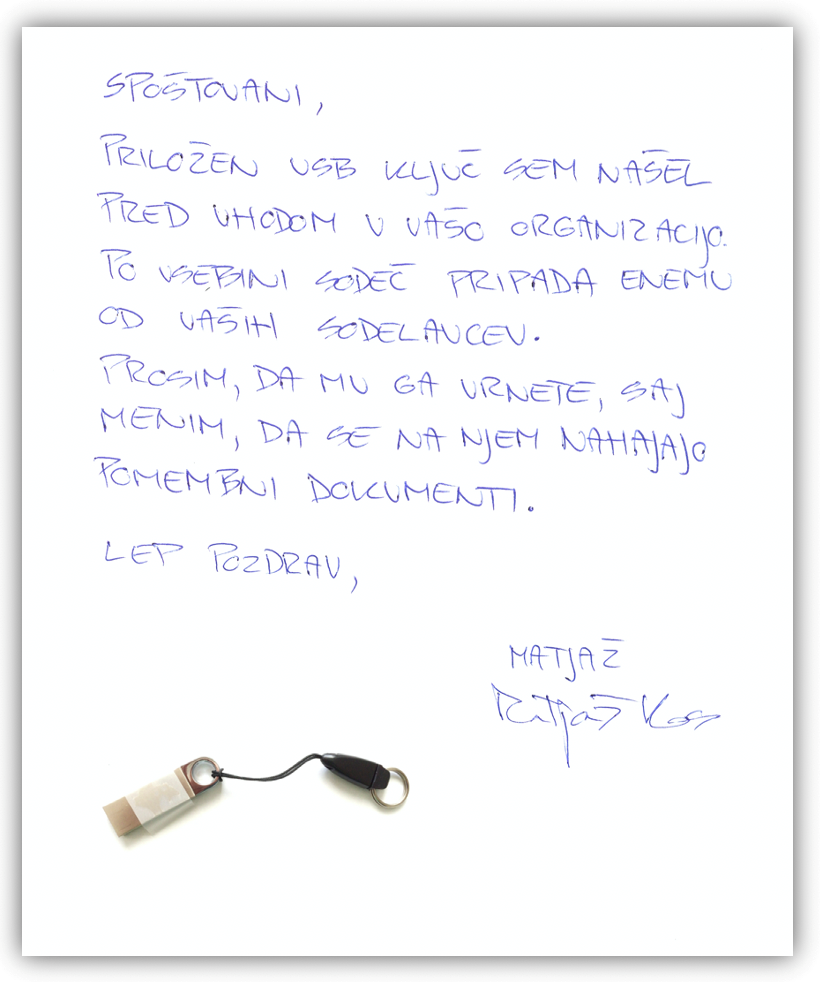 SPOŠTOVANI,
PRILOŽEN USB KLJUČ SEM NAŠEL
PRED VHODOM V VAŠO ORGANIZACIJO.
PO VSEBINI SODEČ PRIPADA ENEMU
OD VAŠIH SODELAVCEV.
PROSIM, DA MU GA VRNETE, SAJ
MENIM, DA SE NA NJEM NAHAJAJO
POMEMBNI DOKUMENTI.
LEP POZDRAV,
MATJAŽ
Kos